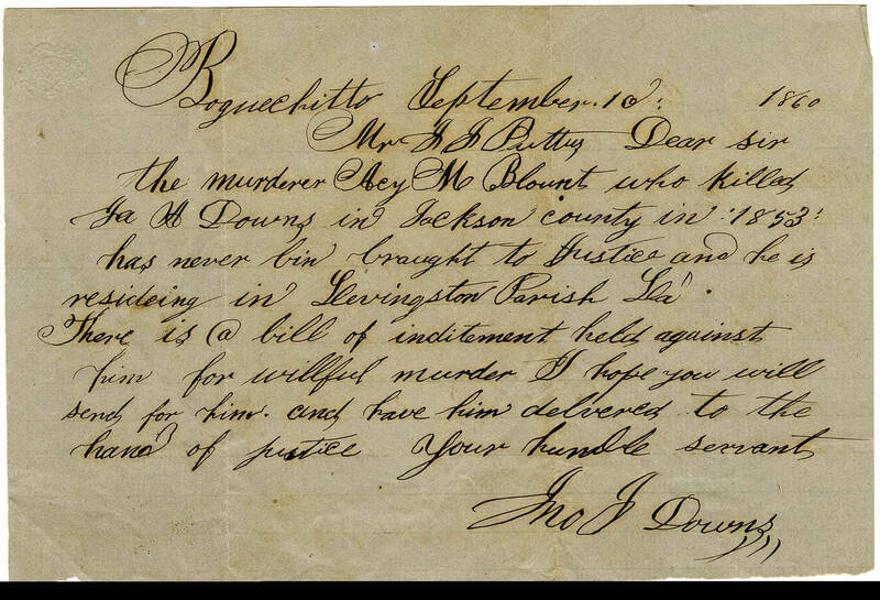 Boguechitto September. 10: 1860
Mr J J Pettus Dear sir
the murderer Acy M Blount who killed
Ja A Downs in Jackson county in "1853"
has never bin braught to Justice and he is
resideing in Llevingston Parish Lla .
There is a bill of inditement held against
him for willful murder I hope you will
send for him. and have him delvered to the
hand of justice Your humble servant
Jno J Downs